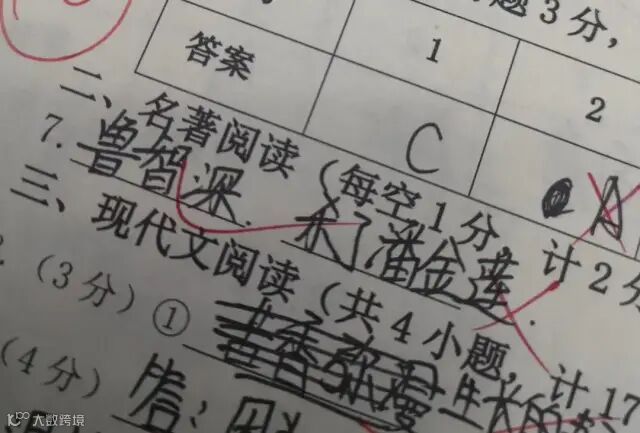 题3分，
答案 1 2
C A
二、名著阅读（每空1分，计2分
7. 鲁智深. 杀了潘金莲.
三、现代文阅读（共4小题，计17
（3分）①
（4分）
大数跨境